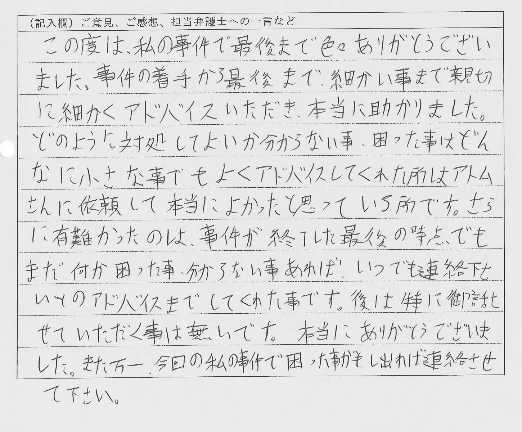 （記入欄）ご意見、ご感想、担当弁護士への一言など
この度は、私の事件で最後まで色々ありがとうござい
ました。事件の着手から最後まで、細かい事まで親切
に細かくアドバイスいただき、本当に助かりました。
どのように対処してよいか分からない事、困った事はどん
なに小さな事でもよくアドバイスしてくれた所はアトム
さんに依頼して本当によかったと思っている所です。さら
に有難かったのは、事件が終了した最後の時点でも
まだ何か困った事、分からない事あれば、いつでも連絡下さ
いとのアドバイスまでしてくれた事です。後は特に御話さ
せていただく事は無いです。本当にありがとうございま
した。また万一、今回の私の事件で困った事がもし出れば連絡させ
て下さい。